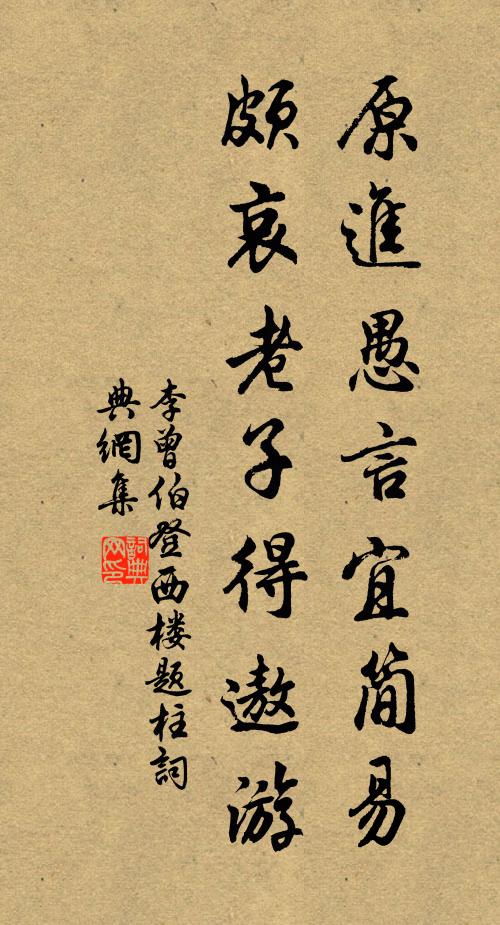 原進愚言宜简易
頗哀老子得遨游
李曾伯登西楼题柱詞
典網集
詞典
网印